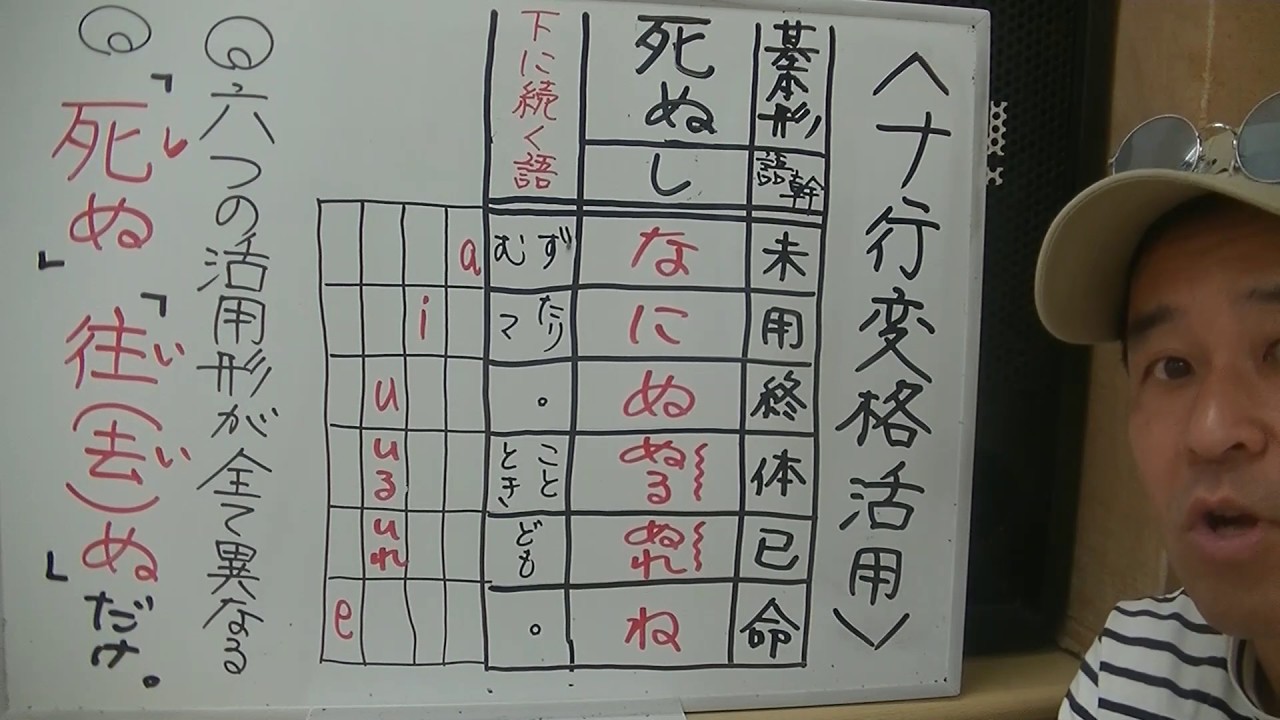 〈ナ行変格活用〉
基本形 語幹 未 用 終 体 已 命
死ぬ し な に ぬ ぬる ぬれ ね
下に続く語 ずむ たりマ 。 こととき ども 。
a
i
u uる uれ
e
◎六つの活用形が全て異なる
◎「死ぬ」「往(去)ぬ」だけ。
し い い